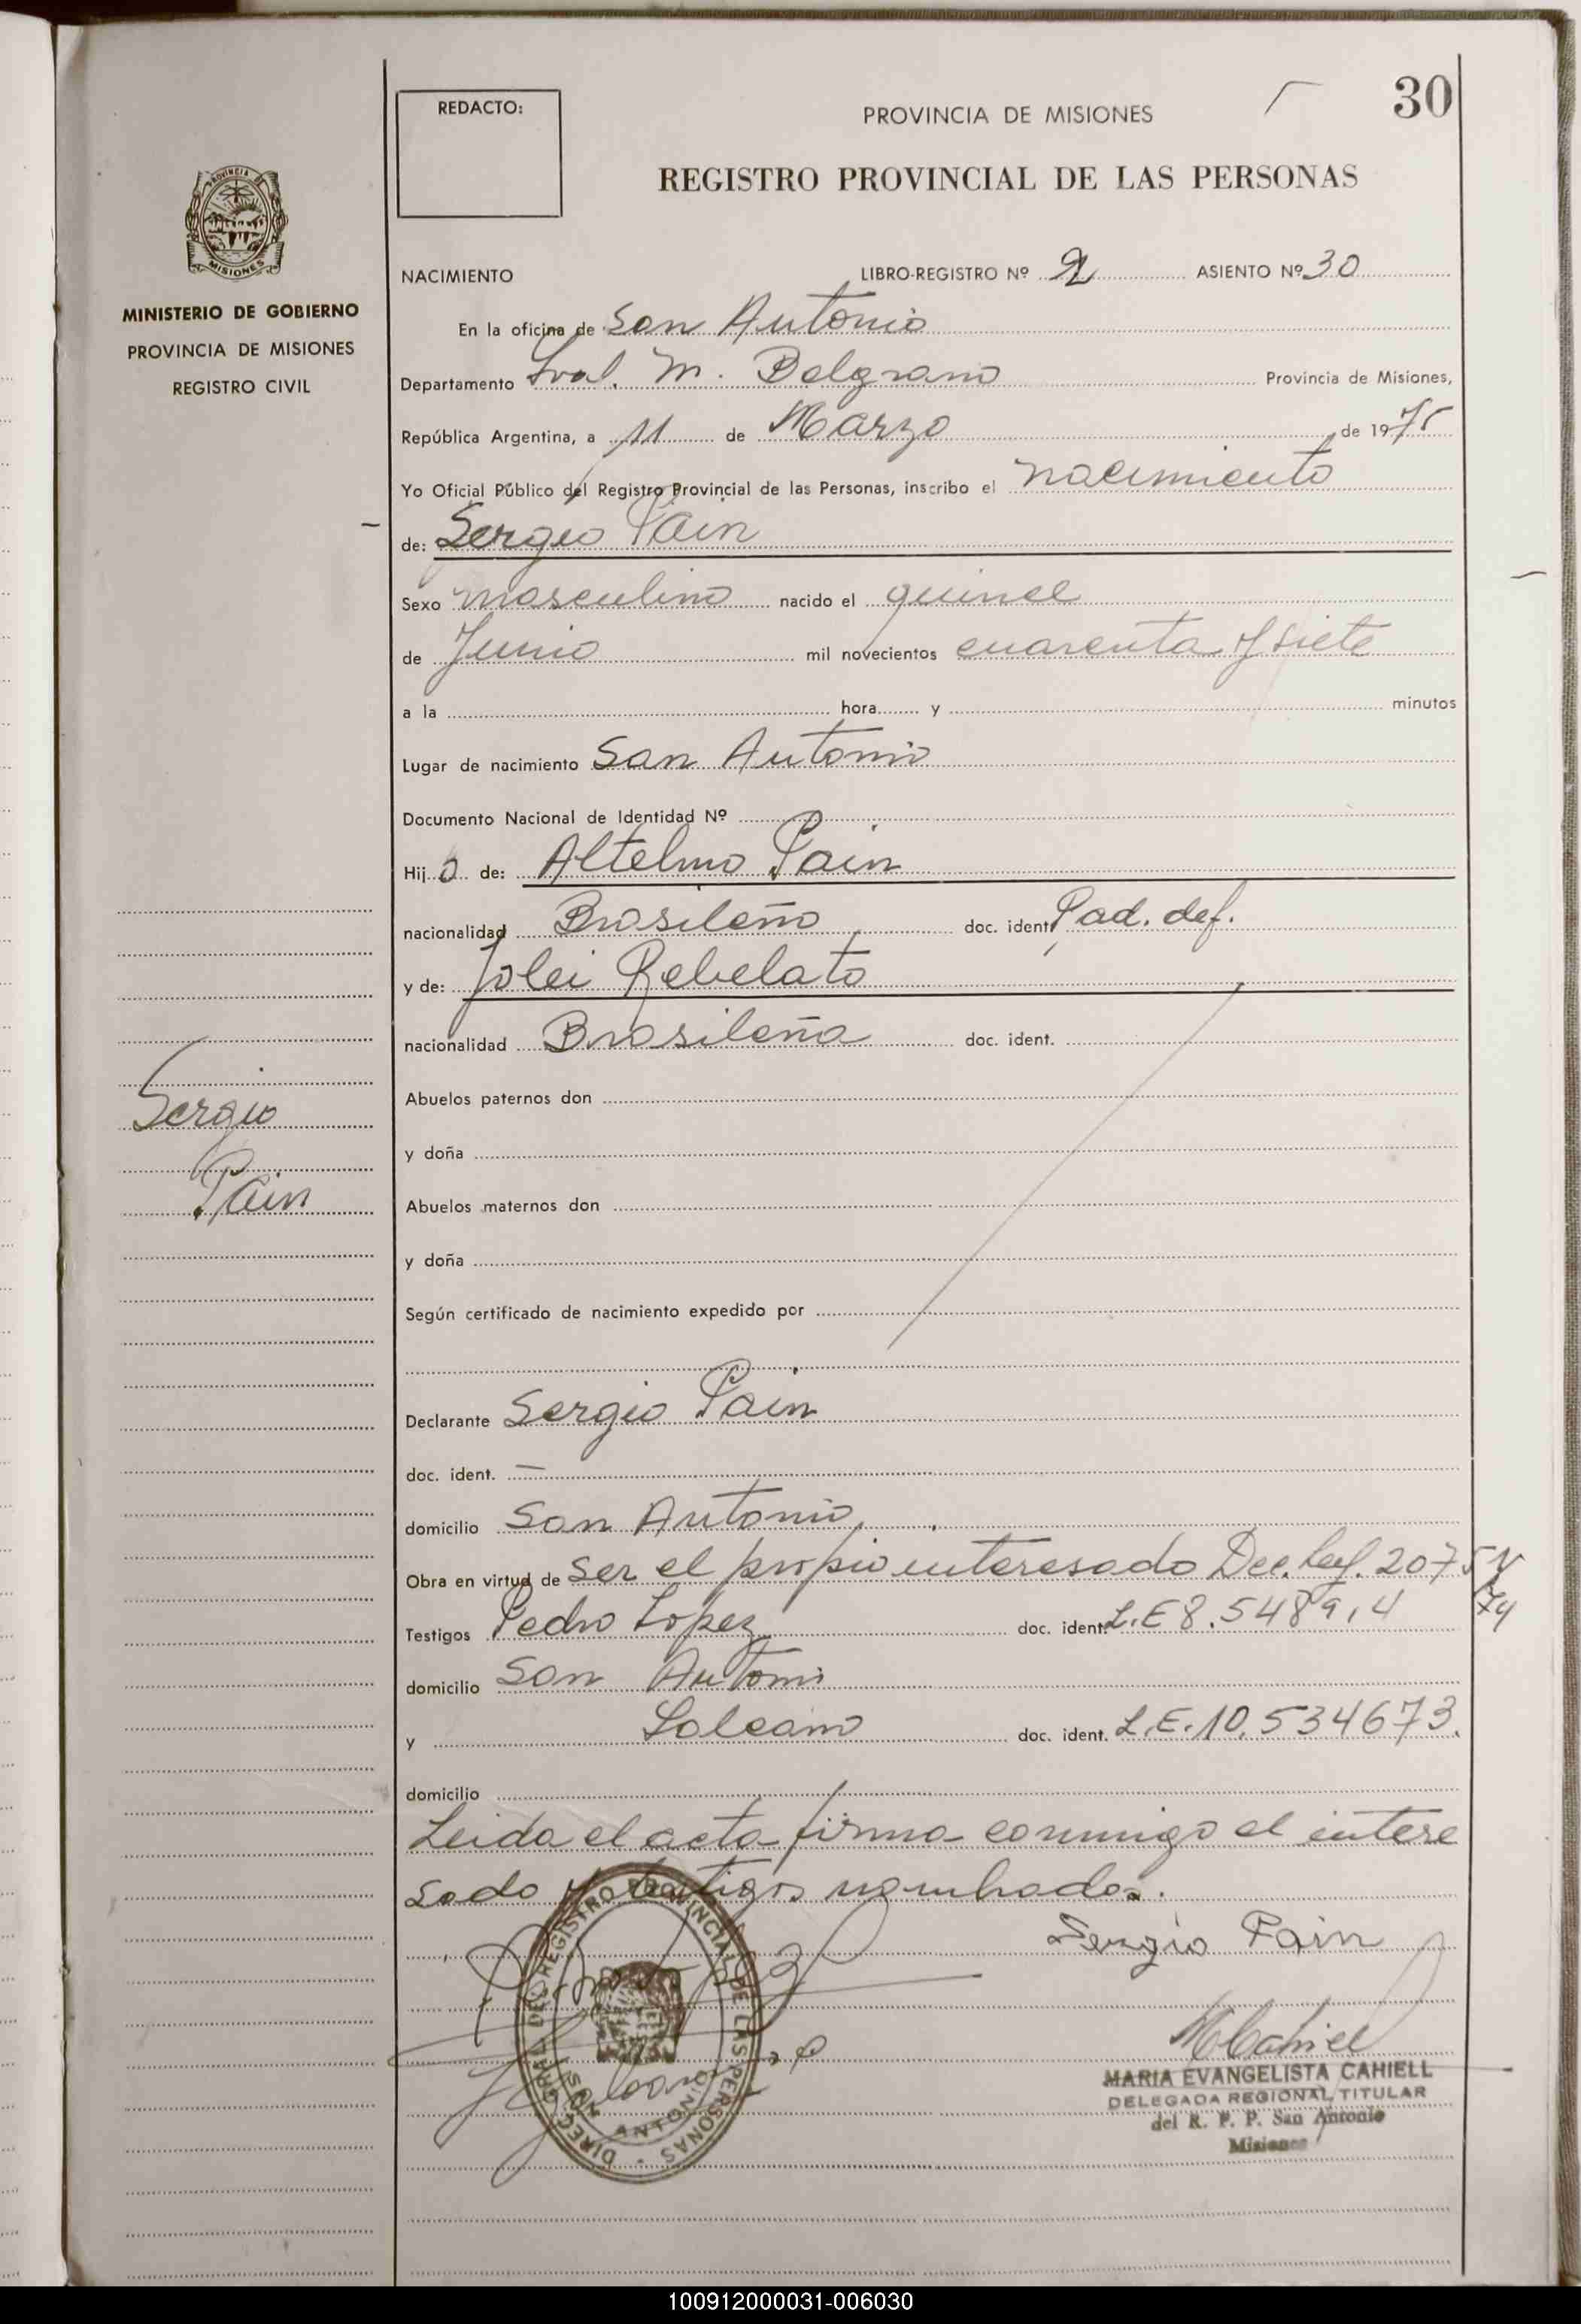 REDACTO:
PROVINCIA DE MISIONES
30
REGISTRO PROVINCIAL DE LAS PERSONAS
PROVINCIA DE
MISIONES
MINISTERIO DE GOBIERNO
PROVINCIA DE MISIONES
REGISTRO CIVIL
NACIMIENTO LIBRO-REGISTRO Nº 2 ASIENTO Nº 30
En la oficina de San Antonio
Departamento Gral. M. Belgrano Provincia de Misiones,
República Argentina, a 11 de Marzo de 1975
Yo Oficial Público del Registro Provincial de las Personas, inscribo el nacimiento
de: Sergio Pain
Sexo masculino nacido el quince
de Junio mil novecientos cuarenta y siete
a la hora y minutos
Lugar de nacimiento San Antonio
Documento Nacional de Identidad Nº
Hijo de: Altelmo Pain
nacionalidad Brasileño doc. ident. Pad. def.
y de: Jolei Rebelato
nacionalidad Brasileña doc. ident.
Abuelos paternos don
y doña
Abuelos maternos don
y doña
Según certificado de nacimiento expedido por
Sergio
Pain
Declarante Sergio Pain
doc. ident. —
domicilio San Antonio
Obra en virtud de ser el propio interesado Dec. Ley. 2075
74
Testigos Pedro Lopez doc. ident. L.E 8.548914
domicilio San Antoni
y Solcano doc. ident. L.E. 10.534673.
domicilio
Leida el acta firma conmigo el intere
sado y testigos nombrados.
Sergio Pain
MCahiel
MARIA EVANGELISTA CAHIELL
DELEGADA REGIONAL TITULAR
del R. P. P. San Antonio
Misiones
DIREC. GRAL. DEL REGISTRO PROVINCIAL DE LAS PERSONAS
SAN ANTONIO
100912000031-006030